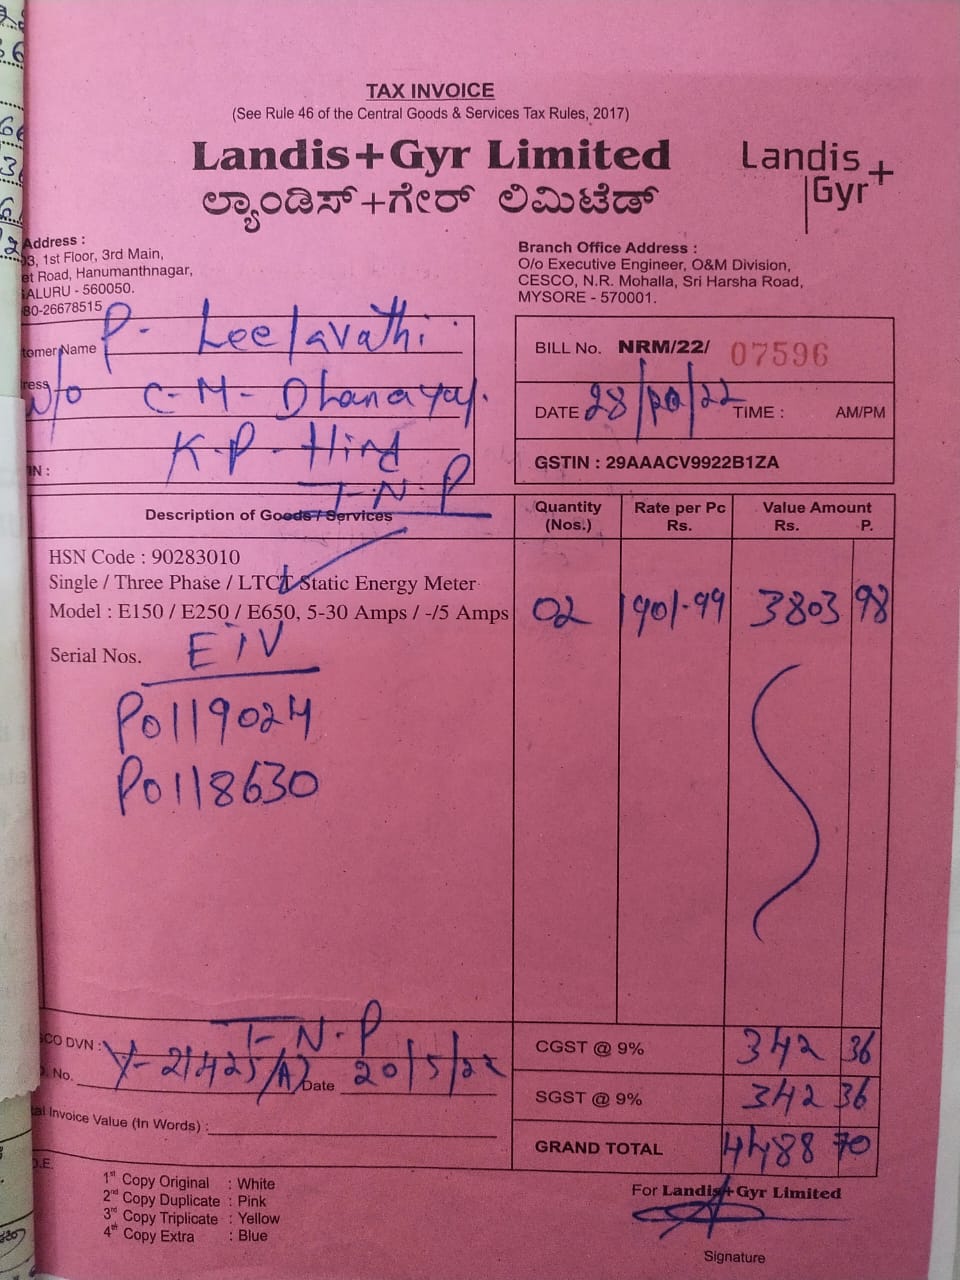 TAX INVOICE
(See Rule 46 of the Central Goods & Services Tax Rules, 2017)
Landis+Gyr Limited
ಲ್ಯಾಂಡಿಸ್+ಗೇರ್ ಲಿಮಿಟೆಡ್
Landis
Gyr+
Address :
3, 1st Floor, 3rd Main,
et Road, Hanumanthnagar,
ALURU - 560050.
80-26678515
Branch Office Address :
O/o Executive Engineer, O&M Division,
CESCO, N.R. Mohalla, Sri Harsha Road,
MYSORE - 570001.
tomer Name P. Leelavathi
ress W/o C-M-
K.P-
IN : T-N-P
BILL No. NRM/22/ 07596
DATE 28/ /22 TIME : AM/PM
GSTIN : 29AAACV9922B1ZA
Description of Goods / Services Quantity (Nos.) Rate per Pc Rs. Value Amount Rs. P.
HSN Code : 90283010
Single / Three Phase / LTCT Static Energy Meter
Model : E150 / E250 / E650, 5-30 Amps / -/5 Amps 02 1901-99 3803 98
Serial Nos.
P0119024
P0118630
CO DVN : T-N-P
. No. Y-21425/(A) Date 20/5/22
al Invoice Value (In Words) :
CGST @ 9% 342 36
SGST @ 9% 342 36
GRAND TOTAL 4488 70
.E.
1st Copy Original : White
2nd Copy Duplicate : Pink
3rd Copy Triplicate : Yellow
4th Copy Extra : Blue
For Landis+Gyr Limited
Signature